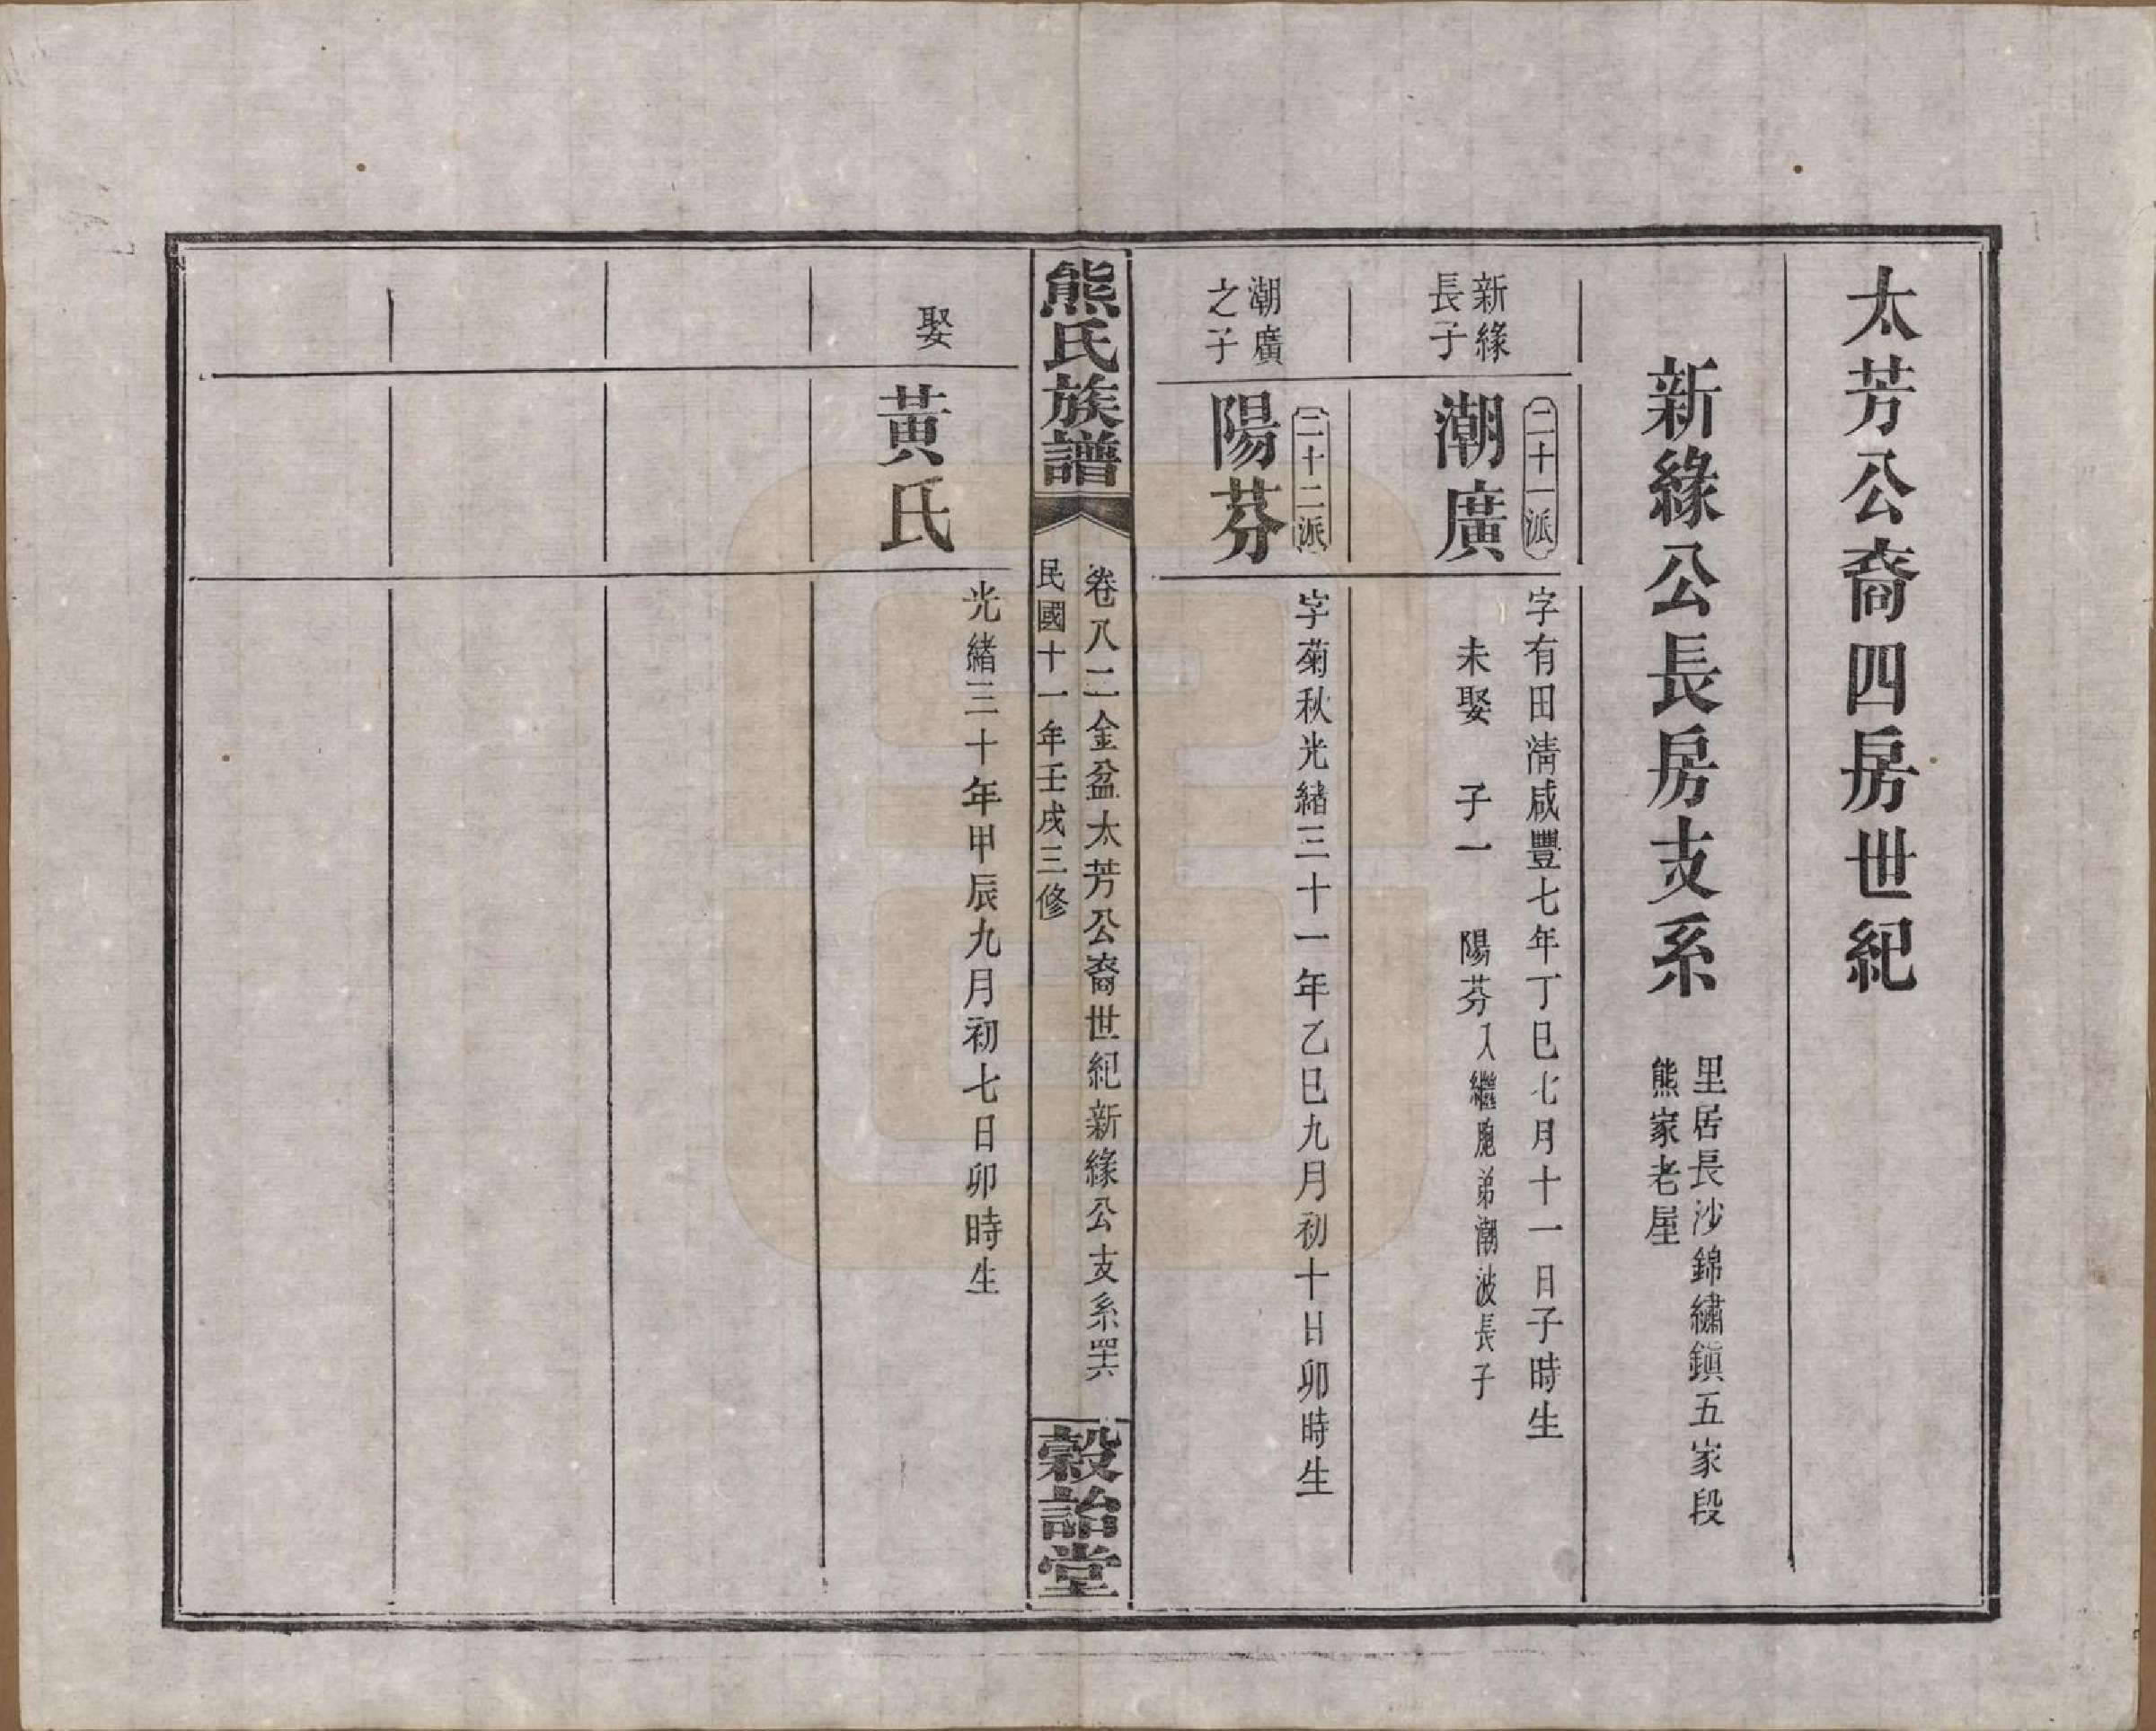 太芳公裔四房世紀
新緣公長房支系
里居長沙錦繡鎮五家段
熊家老屋
新緣
長子
二十一派
潮廣
字有田淸咸豐七年丁巳七月十一日子時生
未娶 子一 陽芬入繼胞弟潮波長子
潮廣
之子
二十二派
陽芬
字菊秋光緖三十一年乙巳九月初十日卯時生
熊氏族譜
卷八二金盆太芳公裔世紀新緣公支系
民國十一年壬戌三修
穀詒堂
娶
黃氏
光緖三十年甲辰九月初七日卯時生